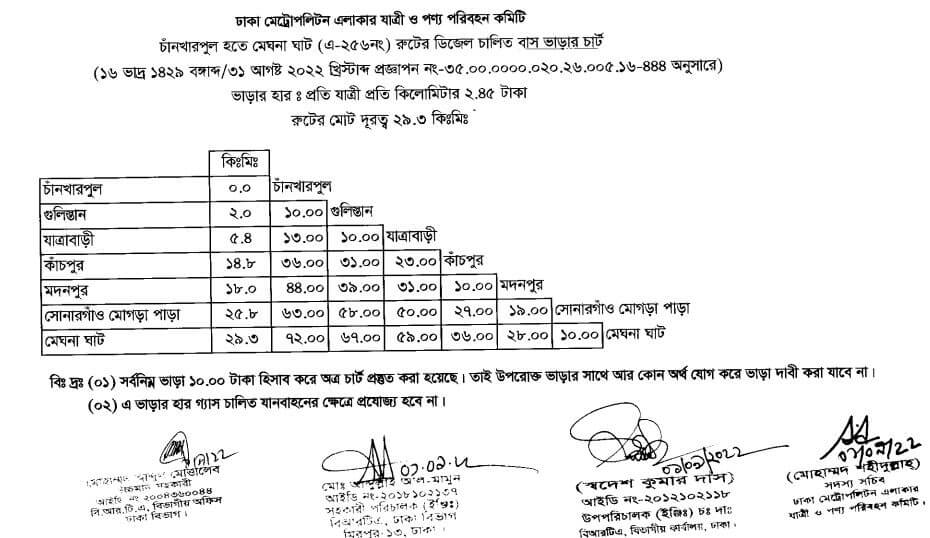 ঢাকা মেট্রোপলিটন এলাকার যাত্রী ও পণ্য পরিবহন কমিটি
চাঁনখারপুল হতে মেঘনা ঘাট (এ-২৫৬নং) রুটের ডিজেল চালিত বাস ভাড়ার চার্ট
(১৬ ভাদ্র ১৪২৯ বঙ্গাব্দ/৩১ আগষ্ট ২০২২ খ্রিস্টাব্দ প্রজ্ঞাপন নং-৩৫.০০.০০০০.০২০.২৬.০০৫.১৬-৪৪৪ অনুসারে)
ভাড়ার হার ঃ প্রতি যাত্রী প্রতি কিলোমিটার ২.৪৫ টাকা
রুটের মোট দূরত্ব ২৯.৩ কিঃমিঃ
কিঃমিঃ
চাঁনখারপুল ০.০ চাঁনখারপুল
গুলিস্তান ২.০ ১০.০০ গুলিস্তান
যাত্রাবাড়ী ৫.৪ ১৩.০০ ১০.০০ যাত্রাবাড়ী
কাঁচপুর ১৪.৮ ৩৬.০০ ৩১.০০ ২৩.০০ কাঁচপুর
মদনপুর ১৮.০ ৪৪.০০ ৩৯.০০ ৩১.০০ ১০.০০ মদনপুর
সোনারগাঁও মোগড়া পাড়া ২৫.৮ ৬৩.০০ ৫৮.০০ ৫০.০০ ২৭.০০ ১৯.০০ সোনারগাঁও মোগড়া পাড়া
মেঘনা ঘাট ২৯.৩ ৭২.০০ ৬৭.০০ ৫৯.০০ ৩৬.০০ ২৮.০০ ১০.০০ মেঘনা ঘাট
বিঃ দ্রঃ (০১) সর্বনিম্ন ভাড়া ১০.০০ টাকা হিসাব করে অত্র চার্ট প্রস্তুত করা হয়েছে। তাই উপরোক্ত ভাড়ার সাথে আর কোন অর্থ যোগ করে ভাড়া দাবী করা যাবে না।
(০২) এ ভাড়ার হার গ্যাস চালিত যানবাহনের ক্ষেত্রে প্রযোজ্য হবে না।
মোতালেব
সহকারী
আইডি নং ২০০৪৩৬০০৪৪
বি.আর.টি.এ, বিভাগীয় অফিস
ঢাকা বিভাগ।
মোঃ আল-মামুন
আইডি নং-২০১৮১০২১৩৭
সহকারী পরিচালক (ইঞ্জিঃ)
বিআরটিএ, ঢাকা বিভাগ
মিরপুর-১৩, ঢাকা।
০১/০৯/২০২২
(স্বদেশ কুমার দাস)
আইডি নং-২০১২১০২১১৮
উপপরিচালক (ইঞ্জিঃ) চঃ দাঃ
বিআরটিএ, বিভাগীয় কার্যালয়, ঢাকা।
(মোহাম্মদ শহীদুল্লাহ)
সদস্য সচিব
ঢাকা মেট্রোপলিটন এলাকার
যাত্রী ও পণ্য পরিবহন কমিটি।